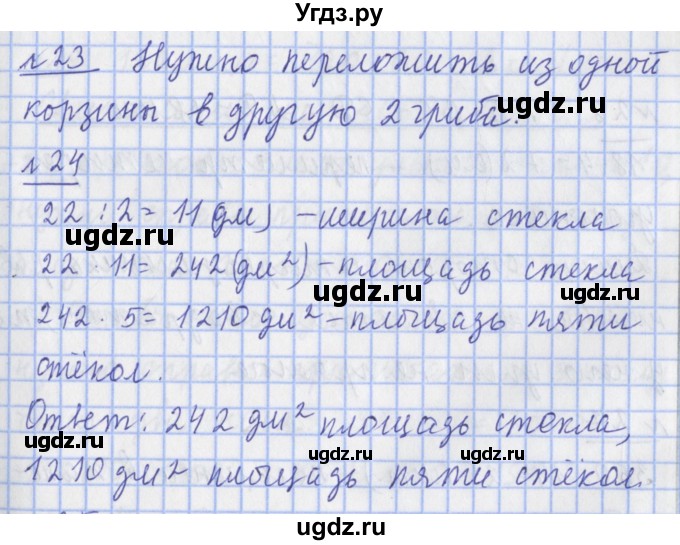 Угдз.ру
№23 Нужно переложить из одной
ugdz.ru ugdz.ru
корзины в другую 2 гриба.
ugdz.ru
№24
22 : 2 = 11 (дм) – ширина стекла
ugdz.ru ugdz.ru
22 · 11 = 242 (дм²) – площадь стекла
ugdz.ru
242 · 5 = 1210 дм² – площадь пяти
ugdz.ru ugdz.ru
стёкол.
Ответ: 242 дм² площадь стекла,
ugdz.ru
1210 дм² площадь пяти стёкол.
ugdz.ru ugdz.ru
ugdz.ru